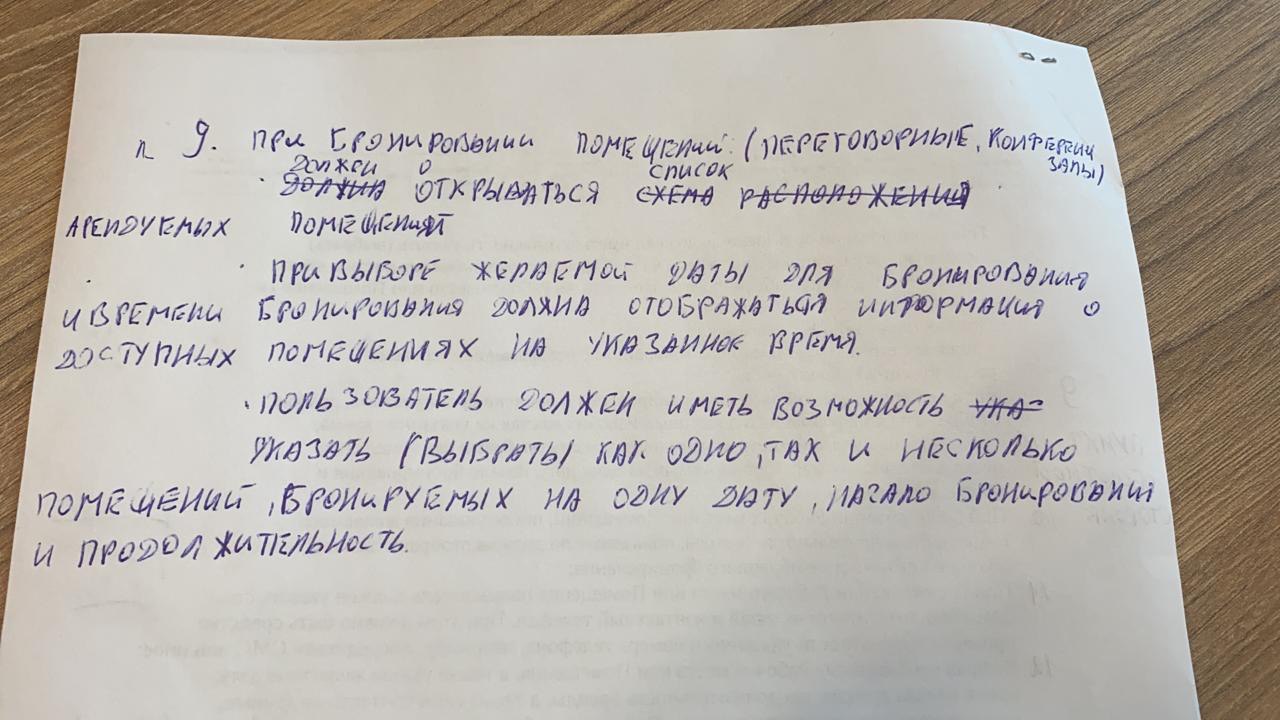 п 9. ПРИ БРОНИРОВАНИИ ПОМЕЩЕНИЙ: (ПЕРЕГОВОРНЫЕ, КОНФЕРЕНЦ
ЗАЛЫ)
ДОЛЖЕН О СПИСОК
· ДОЛЖНА ОТКРЫВАТЬСЯ СХЕМА РАСПОЛОЖЕНИЯ
АРЕНДУЕМЫХ ПОМЕЩЕНИЙ
· ПРИ ВЫБОРЕ ЖЕЛАЕМОЙ ДАТЫ ДЛЯ БРОНИРОВАНИЯ
И ВРЕМЕНИ БРОНИРОВАНИЯ ДОЛЖНА ОТОБРАЖАТЬСЯ ИНФОРМАЦИЯ О
ДОСТУПНЫХ ПОМЕЩЕНИЯХ НА УКАЗАННОЕ ВРЕМЯ.
· ПОЛЬЗОВАТЕЛЬ ДОЛЖЕН ИМЕТЬ ВОЗМОЖНОСТЬ УКА-
УКАЗАТЬ (ВЫБРАТЬ) КАК ОДНО, ТАК И НЕСКОЛЬКО
ПОМЕЩЕНИЙ, БРОНИРУЕМЫХ НА ОДНУ ДАТУ, НАЧАЛО БРОНИРОВАНИЯ
И ПРОДОЛЖИТЕЛЬНОСТЬ.